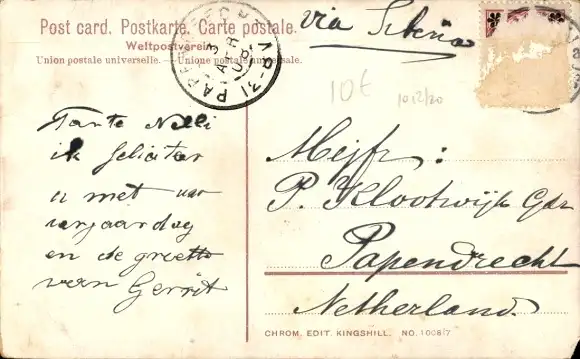 Post card. Postkarte. Carte postale.
Weltpostverein.
Union postale universelle. — Unione postale universale.
via Siberia
10€
1012/20
Tante Nelli
ik feliciter
u met uw
verjaardag
en de groette
van Gerrit
Mejfr:
P. Klootwijk Gdr
Papendrecht
Netherland.
CHROM. EDIT. KINGSHILL. NO. 10087